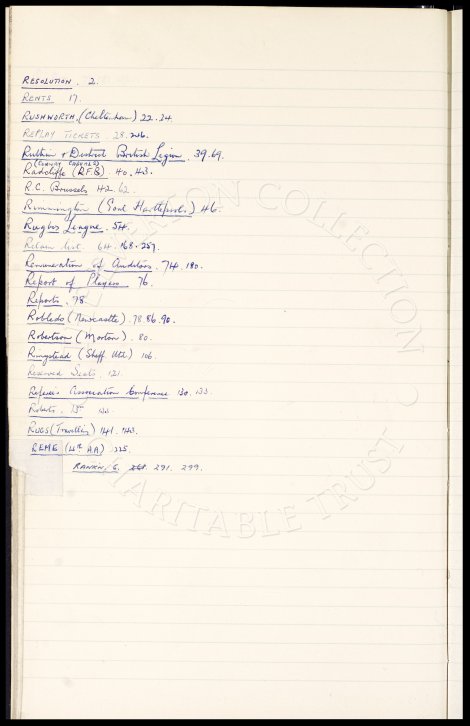 RESOLUTION. 2.
RENTS 17.
RUSHWORTH. (Cheltenham) 22.24.
REPLAY TICKETS. 28.
Ruthin & District British Legion. 39.69.
Radcliffe (R.F.G). 40.43.
R.C. Brussels 42.62.
Rimmington (East Hartlepools) 46.
Rugby League. 54.
Retain list. 64.168.257.
Remuneration of Auditors. 74. 180.
Report of Players 76.
Reports. 78.
Robledo (Newcastle). 78 86.90.
Robertson (Morton). 80.
Ringstead (Sheff Utd) 106.
Reserved Seats. 121.
Referees Association Conference 130. 133.
Roberts. 133.
RUGS (Travelling) 141. 143.
REME (4th AA) 225.
RANKIN. G. 268. 291. 299.
COLLECTION
CHARITABLE TRUST